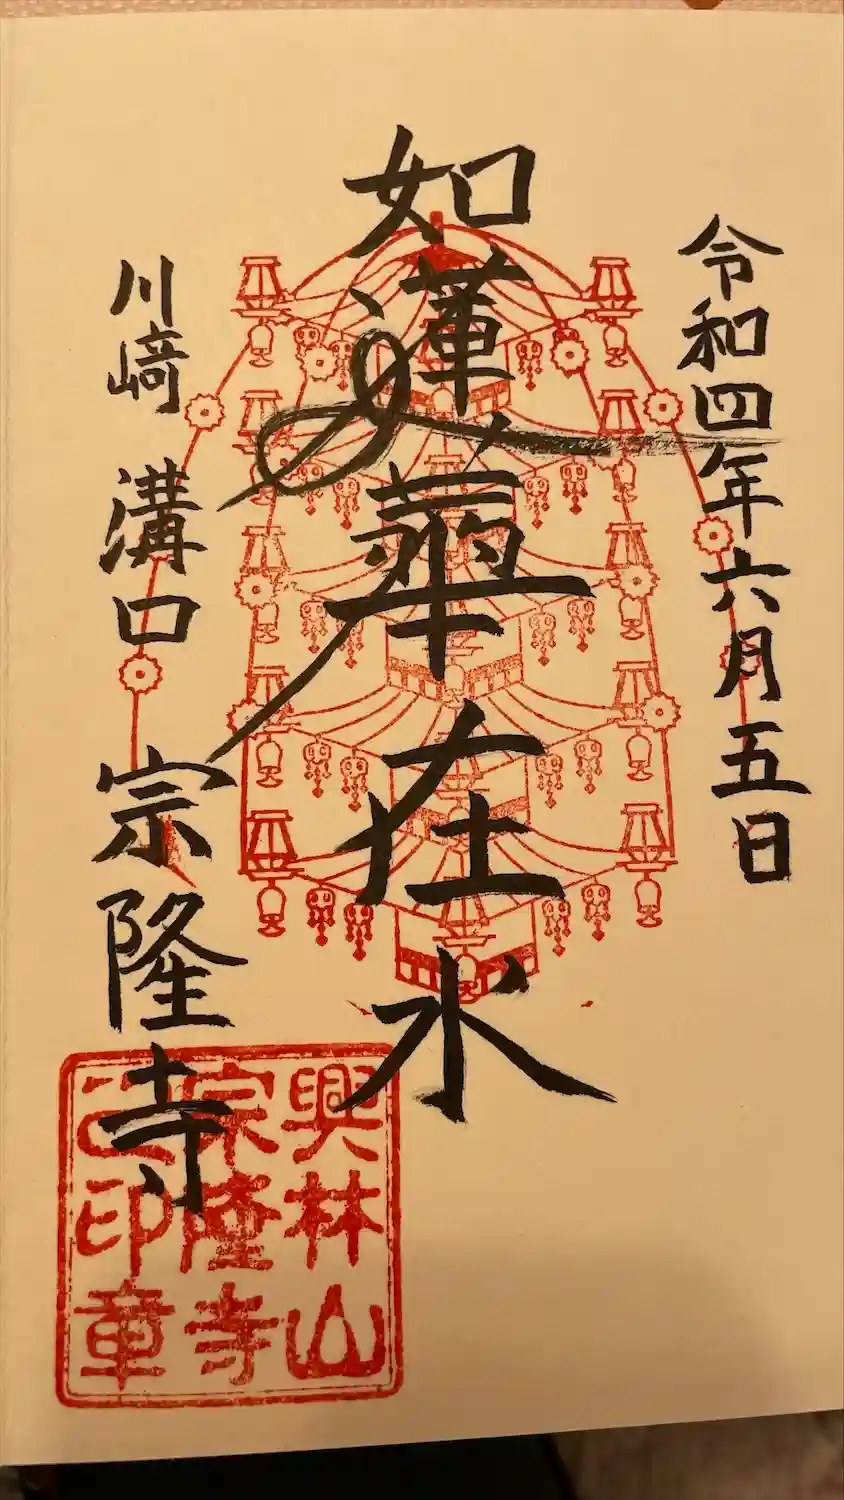 令和四年六月五日
如蓮華在水
川﨑 溝口 宗隆寺
興林山
宗隆寺
之印章